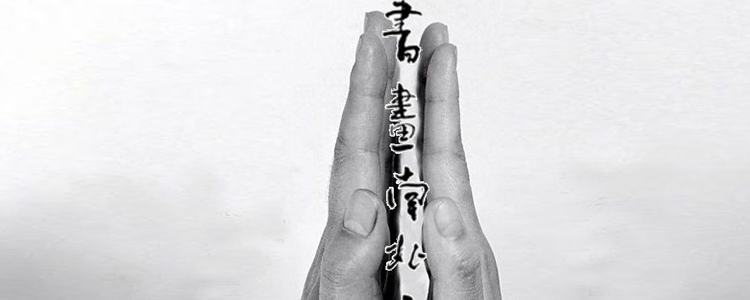 書畫南北